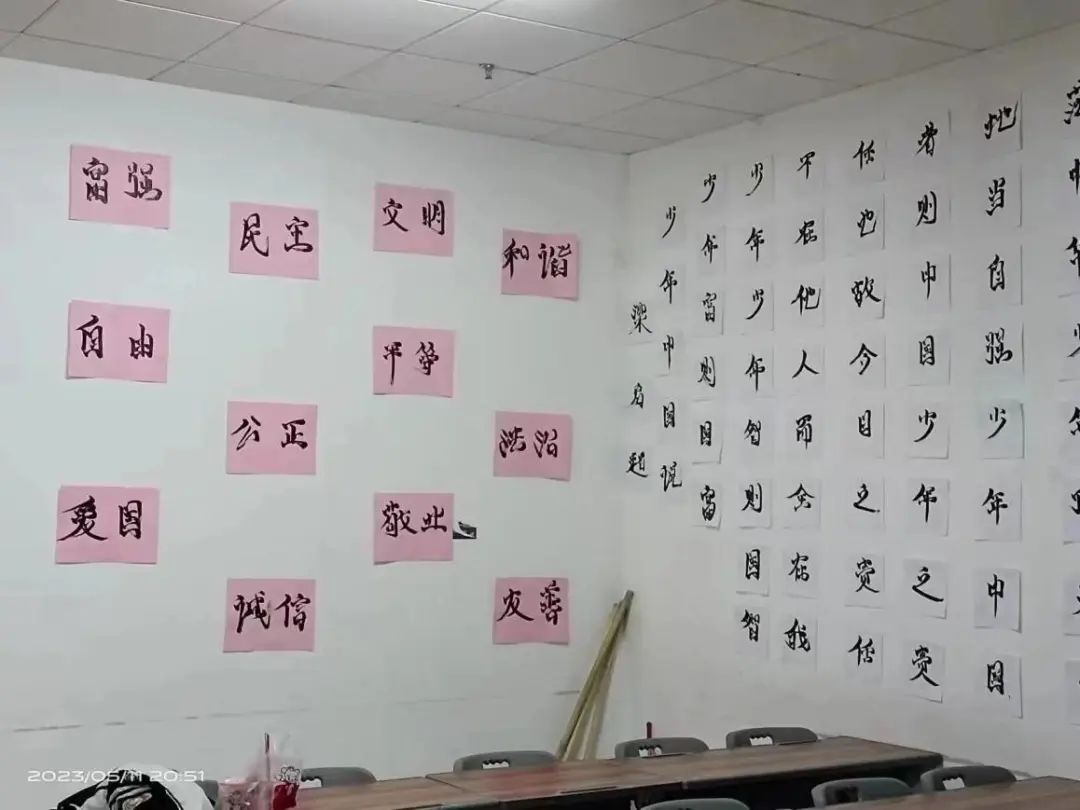 富强
民主
文明
和谐
自由
平等
公正
法治
爱国
敬业
诚信
友善
地当自强少年中国
者则中国少年之责
任也故今日之责任
不在他人而全在我
少年少年智则国智
少年富则国富
少年中国说
梁启超
2023/05/11 20:51